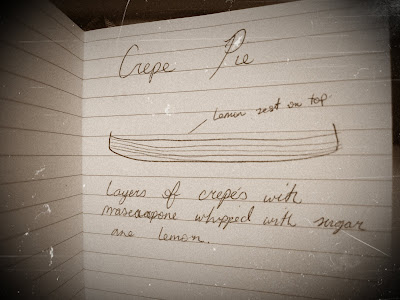 Crepe Pie
Lemon zest on top
Layers of crepes with
mascapone whipped with sugar
and lemon.